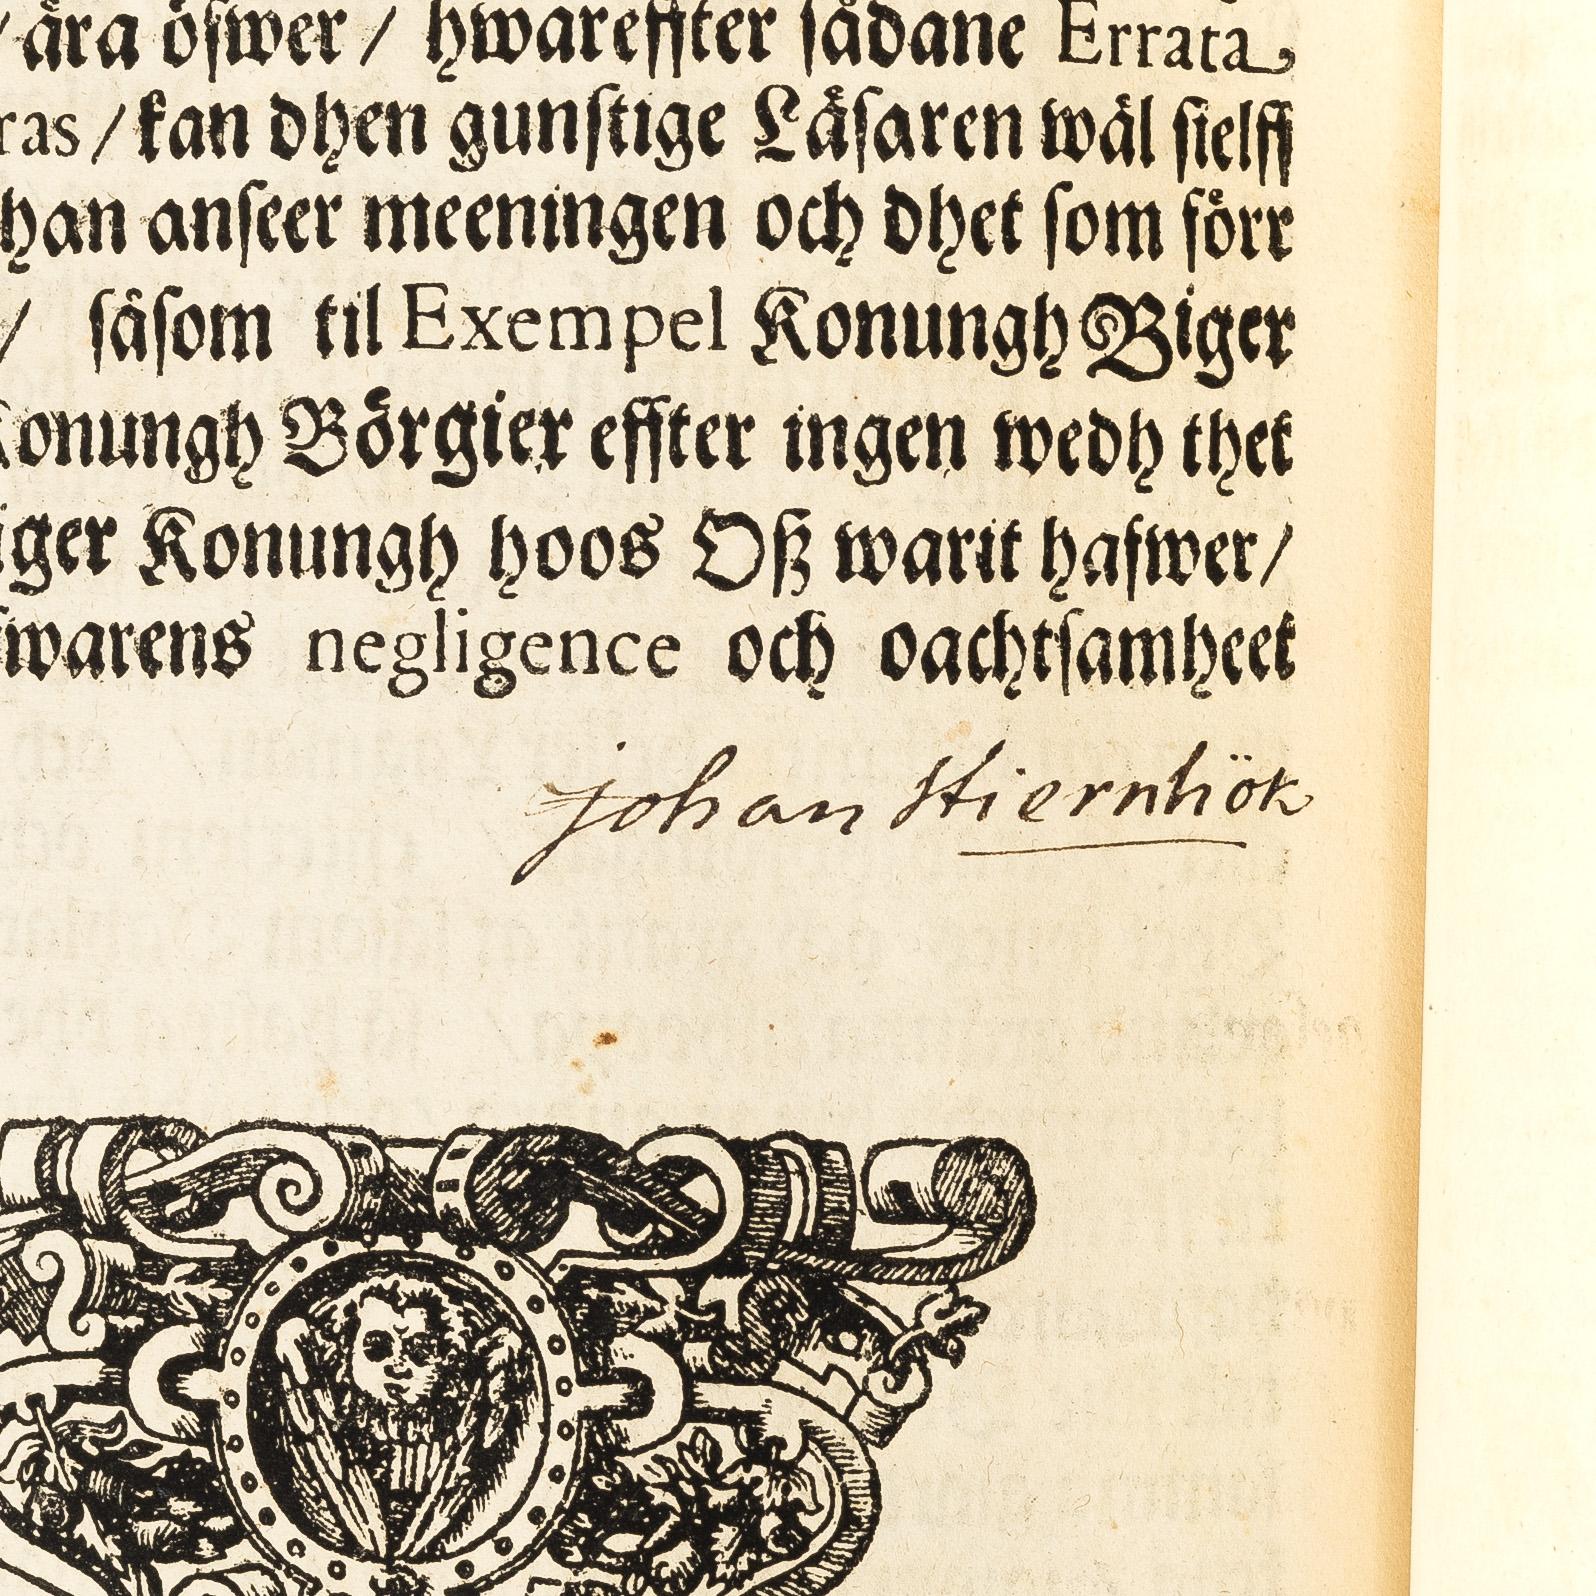 / ära öfwer / hwareffter sådane Errata
ras / kan dhen gunstige Läsaren wäl sielff
han anseer meeningen och dhet som förr
/ såsom til Exempel Konungh Biger
Konungh Börgier effter ingen wedh thet
iger Konungh hoos Oß warit hafwer /
swarens negligence och oachtsamheet
Johan Stiernhök